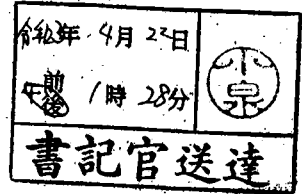 令和3年 4月 22日
午前後 1時 28分
小泉
書記官送達